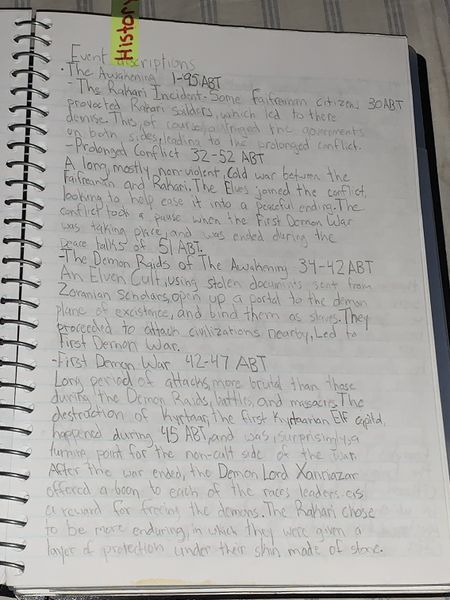 History
Event descriptions
· The Awakening 1-95 ABT
- The Rahari Incident - Some Faifreman citizens 30 ABT
provected Rahari soilders, which led to there
demise. This, of course, intriged the governments
on both sides, leading to the prolonged conflict.
- Prolonged Conflict 32-52 ABT
A long, mostly non-violent, Cold war between the
Faifreman and Rahari. The Elves joined the conflict,
looking to help ease it into a peaceful ending. The
conflict took a pause when the First Demon War
was taking place, and was ended during the
peace talks of 51 ABT.
- The Demon Raids of The Awakening 34-42 ABT
An Elven Cult, using stolen documents sent from
Zoranian scholars, open up a portal to the demon
plane of excistance, and bind them as slaves. They
proceeded to attack civilizations nearby, Led to
First Demon War.
- First Demon War 42-47 ABT
Long period of attacks, more brutal than those
during the Demon Raids, battles, and massacres. The
destruction of Kyrtaar, the first Kyrtaarian Elf capital,
happened during 45 ABT, and was, surprisingly, a
turning point for the non-cult side of the war.
After the war ended, the Demon Lord Xannazar
offered a boon to each of the races leaders as
a reward for freeing the demons. The Rahari chose
to be more enduring, in which they were given a
layer of protection under their skin made of stone.